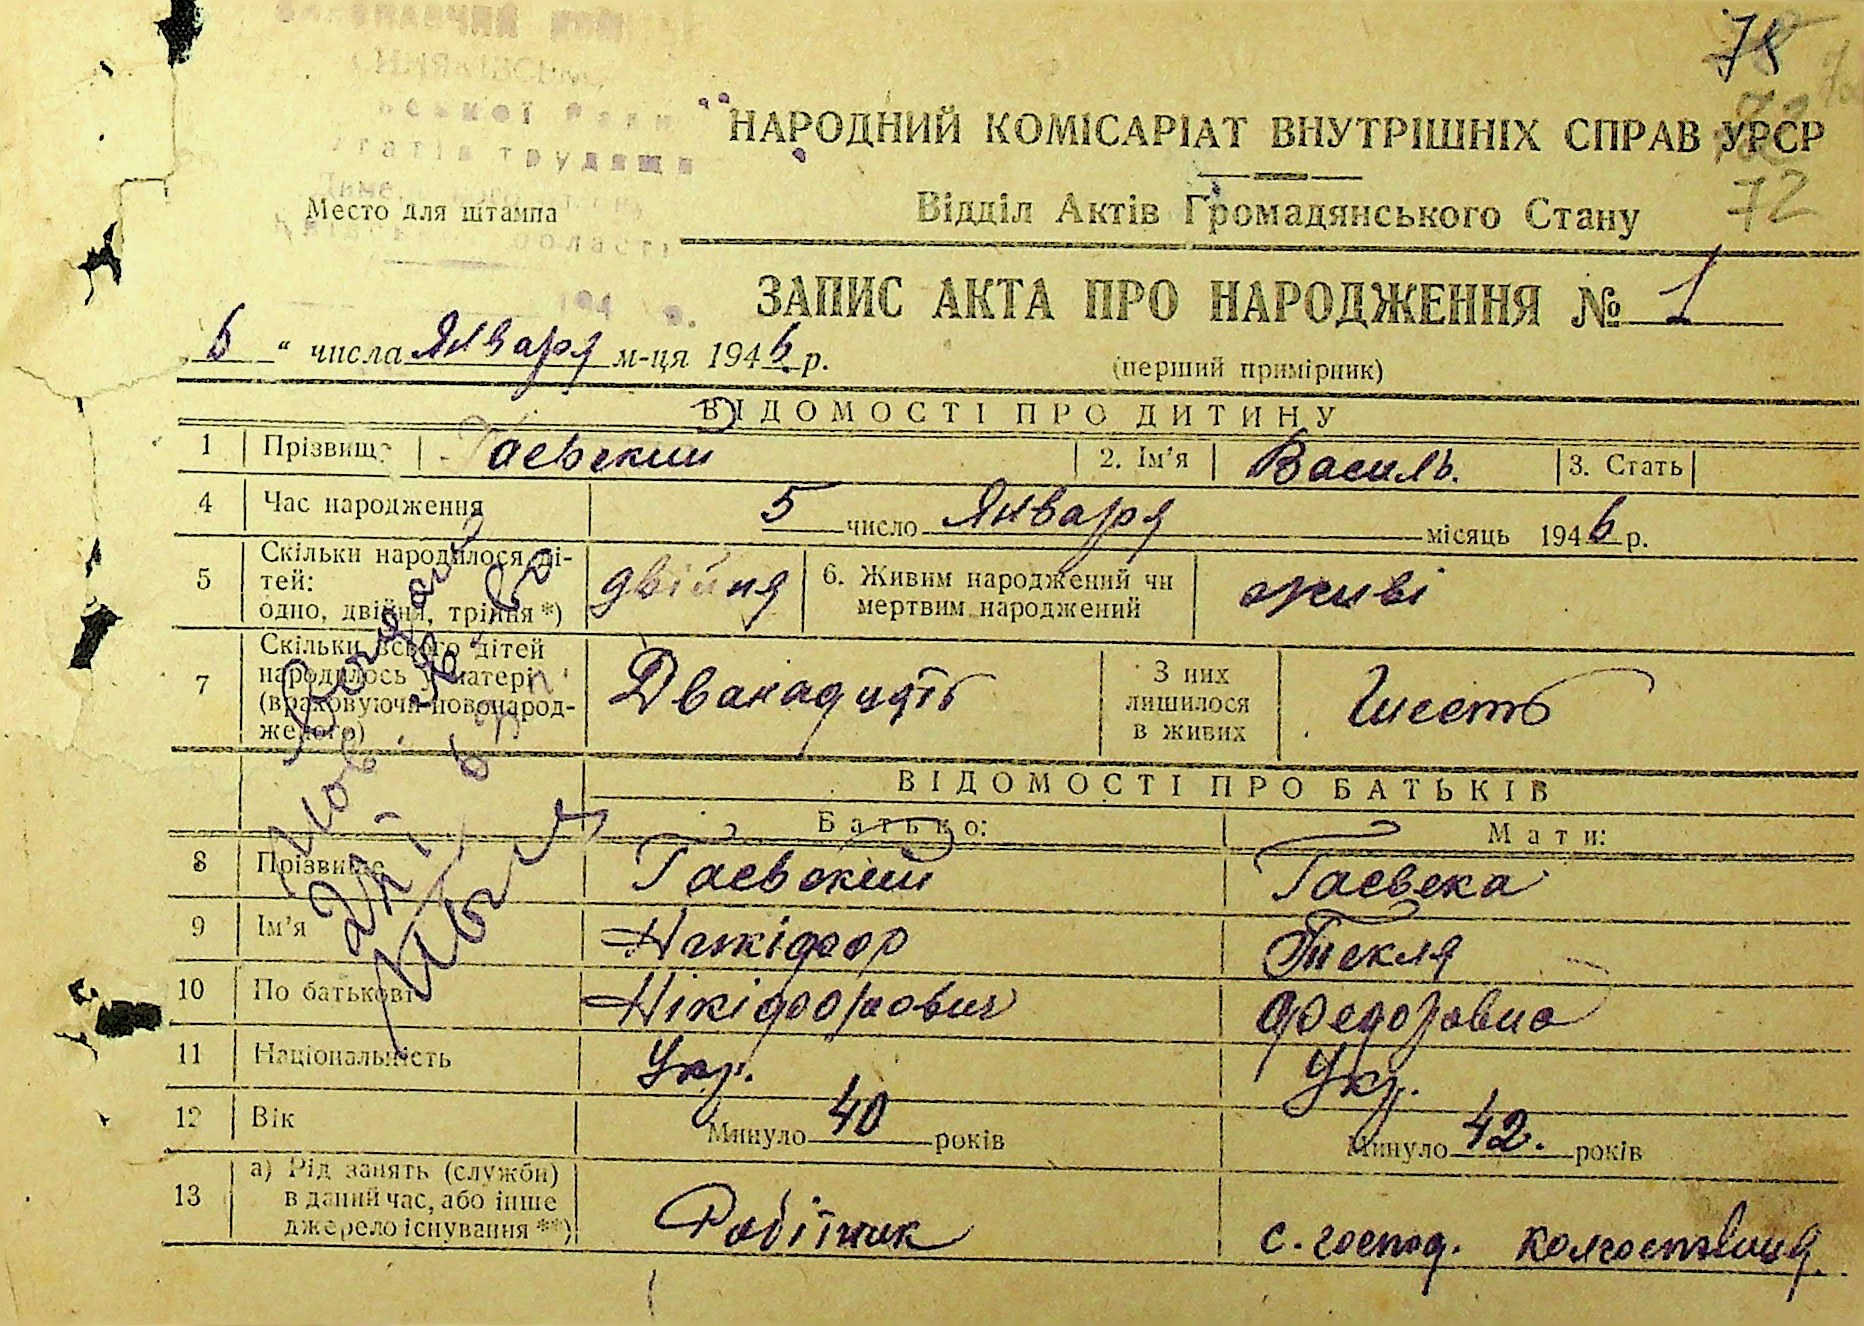 78
72
72
НАРОДНИЙ КОМІСАРІАТ ВНУТРІШНІХ СПРАВ УРСР
Место для штампа
Відділ Актів Громадянського Стану
ЗАПИС АКТА ПРО НАРОДЖЕННЯ № 1
6 " числа Января м-ця 1946 р.
(перший примірник)
ВІДОМОСТІ ПРО ДИТИНУ
1 Прізвище Гаевский 2. Ім'я Василь. 3. Стать
4 Час народження 5 число Января місяць 1946 р.
5 Скільки народилося ді-
тей:
одно, двійня, трійня *) двійня 6. Живим народжений чи
мертвим народжений живі
7 Скільки всього дітей
народилось у матері
(враховуючи новонарод-
женого) Дванадцять З них
лишилося
в живих Шесть
ВІДОМОСТІ ПРО БАТЬКІВ
Батько: Мати:
8 Прізвище Гаевский Гаевска
9 Ім'я Нікіфор Текля
10 По батькові Нікіфорович Федоровна
11 Національність Укр. Укр.
12 Вік Минуло 40 років Минуло 42. років
13 а) Рід занять (служби)
в даний час, або інше
джерело існування **) Робітник с. господ. колгоспниця.